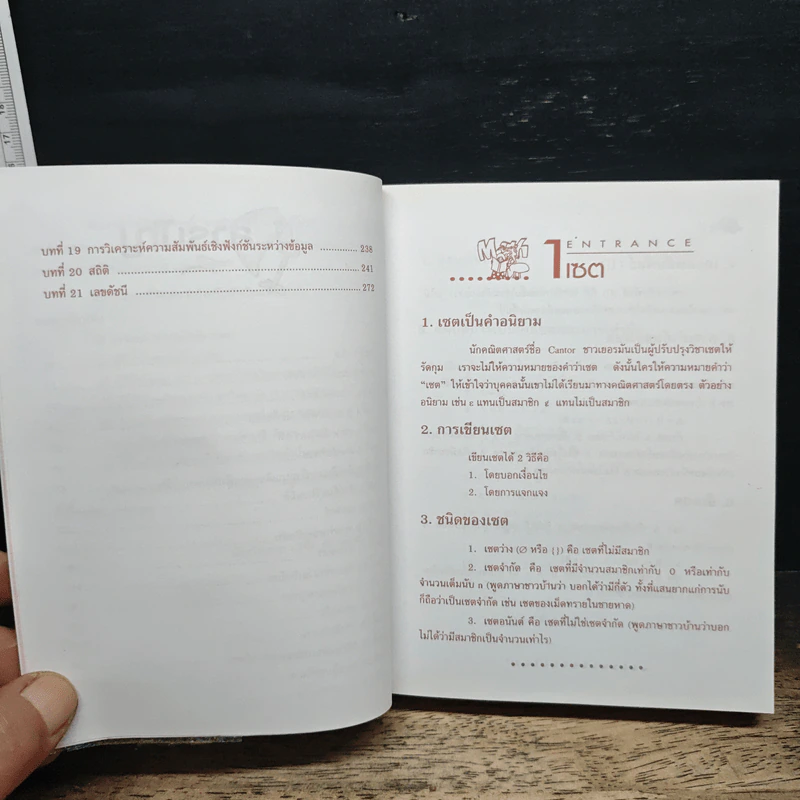 บทที่ 19 การวิเคราะห์ความสัมพันธ์เชิงฟังก์ชันระหว่างข้อมูล ............. 238
บทที่ 20 สถิติ ............. 241
บทที่ 21 เลขดัชนี ............. 272
Math
ENTRANCE
1 เซต
1. เซตเป็นคำอนิยาม
นักคณิตศาสตร์ชื่อ Cantor ชาวเยอรมันเป็นผู้ปรับปรุงวิชาเซตให้
รัดกุม เราจะไม่ให้ความหมายของคำว่าเซต ดังนั้นใครให้ความหมายคำว่า
"เซต" ให้เข้าใจว่าบุคคลนั้นเขาไม่ได้เรียนมาทางคณิตศาสตร์โดยตรง ตัวอย่าง
อนิยาม เช่น ε แทนเป็นสมาชิก ∉ แทนไม่เป็นสมาชิก
2. การเขียนเซต
เขียนเซตได้ 2 วิธีคือ
1. โดยบอกเงื่อนไข
2. โดยการแจกแจง
3. ชนิดของเซต
1. เซตว่าง (∅ หรือ {}) คือ เซตที่ไม่มีสมาชิก
2. เซตจำกัด คือ เซตที่มีจำนวนสมาชิกเท่ากับ 0 หรือเท่ากับ
จำนวนเต็มนับ n (พูดภาษาชาวบ้านว่า บอกได้ว่ามีกี่ตัว ทั้งที่แสนยากแก่การนับ
ก็ถือว่าเป็นเซตจำกัด เช่น เซตของเม็ดทรายในชายหาด)
3. เซตอนันต์ คือ เซตที่ไม่ใช่เซตจำกัด (พูดภาษาชาวบ้านว่าบอก
ไม่ได้ว่ามีสมาชิกเป็นจำนวนเท่าไร)